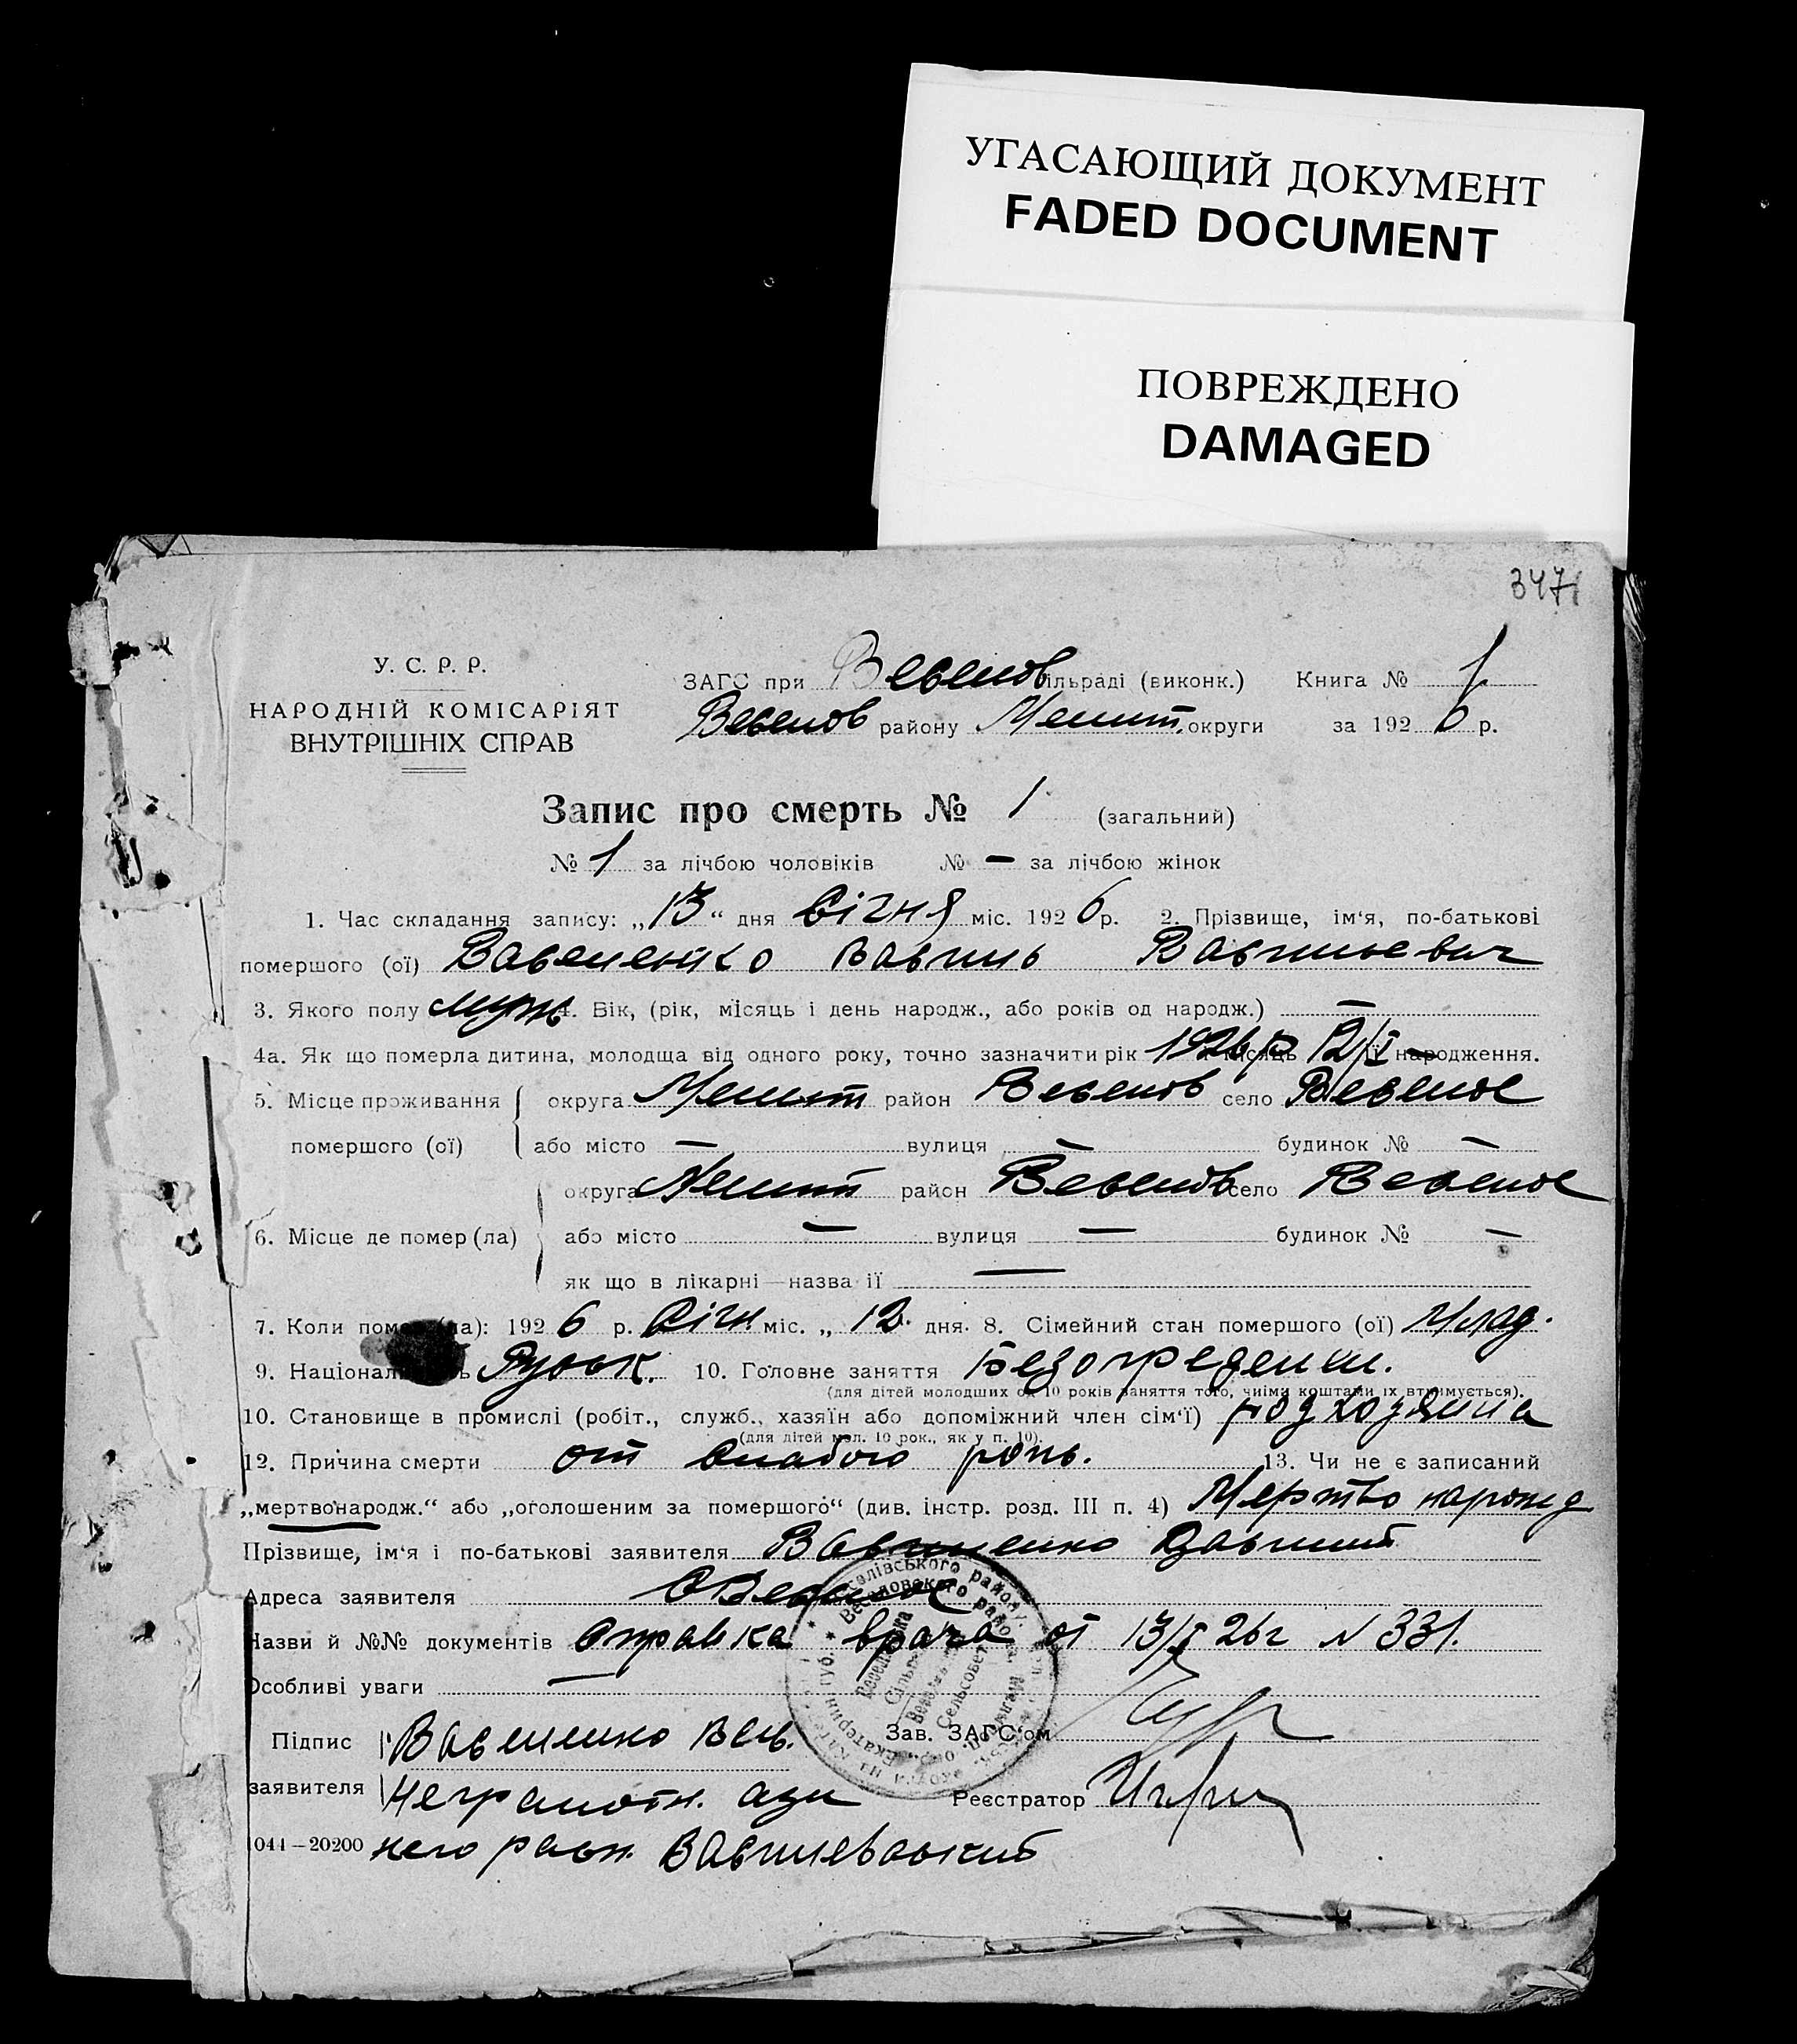 УГАСАЮЩИЙ ДОКУМЕНТ
FADED DOCUMENT
ПОВРЕЖДЕНО
DAMAGED
3471
У. С. Р. Р.
НАРОДНІЙ КОМІСАРІЯТ
ВНУТРІШНІХ СПРАВ
ЗАГС при Веселов ільраді (виконк.) Книга № 1
Веселов району Мелит. округи за 1926 р.
Запис про смерть № 1 (загальний)
№ 1 за лічбою чоловіків № — за лічбою жінок
1. Час складання запису: „13“ дня Січня міс. 1926 р. 2. Прізвище, ім‘я, по-батькові
помершого (ої)
3. Якого полу муж 4. Вік, (рік, місяць і день народж., або років од народж.) —
4а. Як що померла дитина, молодша від одного року, точно зазначити рік 1926 р місяць 12/I її народження.
5. Місце проживання округа Мелит район Веселов село Веселое
помершого (ої) або місто — вулиця — будинок № —
округа Мелит район Веселов село Веселое
6. Місце де помер (ла) або місто — вулиця — будинок № —
як що в лікарні—назва її —
7. Коли поме (ла): 1926 р. Січн міс. „ 12. дня. 8. Сімейний стан помершого (ої) Млад.
9. Націонал ь Руськ. 10. Головне заняття
(для дітей молодших ок 10 років заняття того, чиїми коштами їх втримується).
10. Становище в промислі (робіт., служб., хазяїн або допоміжний член сім‘ї)
(для дітей мол. 10 рок., як у п. 10).
12. Причина смерти от слабого рож. 13. Чи не є записаний
„мертвонародж.“ або „оголошеним за помершого“ (див. інстр. розд. III п. 4) Мертво нарожд
Прізвище, ім‘я і по-батькові заявителя
Адреса заявителя
Назви й №№ документів Справка врача от 13/I 26г N 331.
Особливі уваги —
Підпис Зав. ЗАГС‘ом
заявителя Неграмотн. а за Реєстратор
1044—20200 него расп.